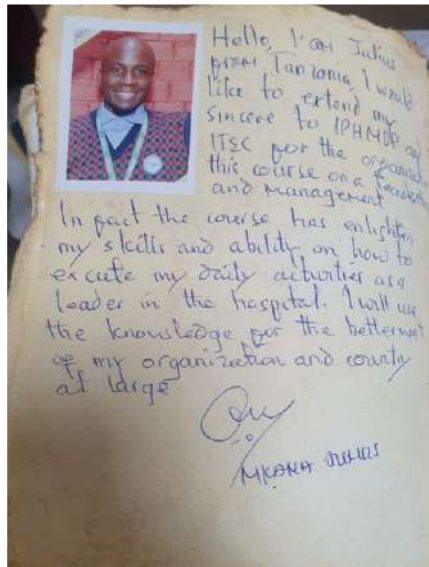 Hello, I'am Julius
from Tanzania, I would
like to extend my
sincere to IPHMDP and
ITEC for the organization
this course on a leadership
and management.
In fact the course has enlighten
my skills and ability on how to
excute my daily activities as a
leader in the hospital. I will use
the knowledge for the betterment
of my organization and country
at large.
MKAMA JULIUS